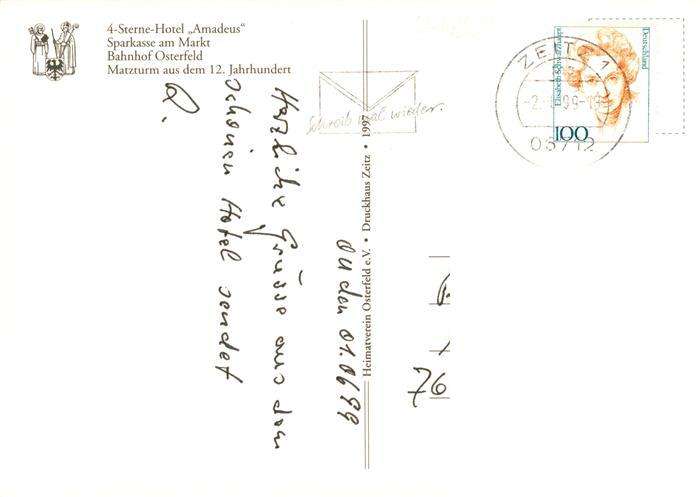 4-Sterne-Hotel „Amadeus“
Sparkasse am Markt
Bahnhof Osterfeld
Matzturm aus dem 12. Jahrhundert
Schreib mal wieder.
ZEITZ 1
99
06712
Deutschland
Elisabeth Schwarzhaupt
100
Heimatverein Osterfeld e.V. • Druckhaus Zeitz • 1997
den 01.06 99
Herzliche Grüsse aus dem
schönen Hotel sendet
R.
76